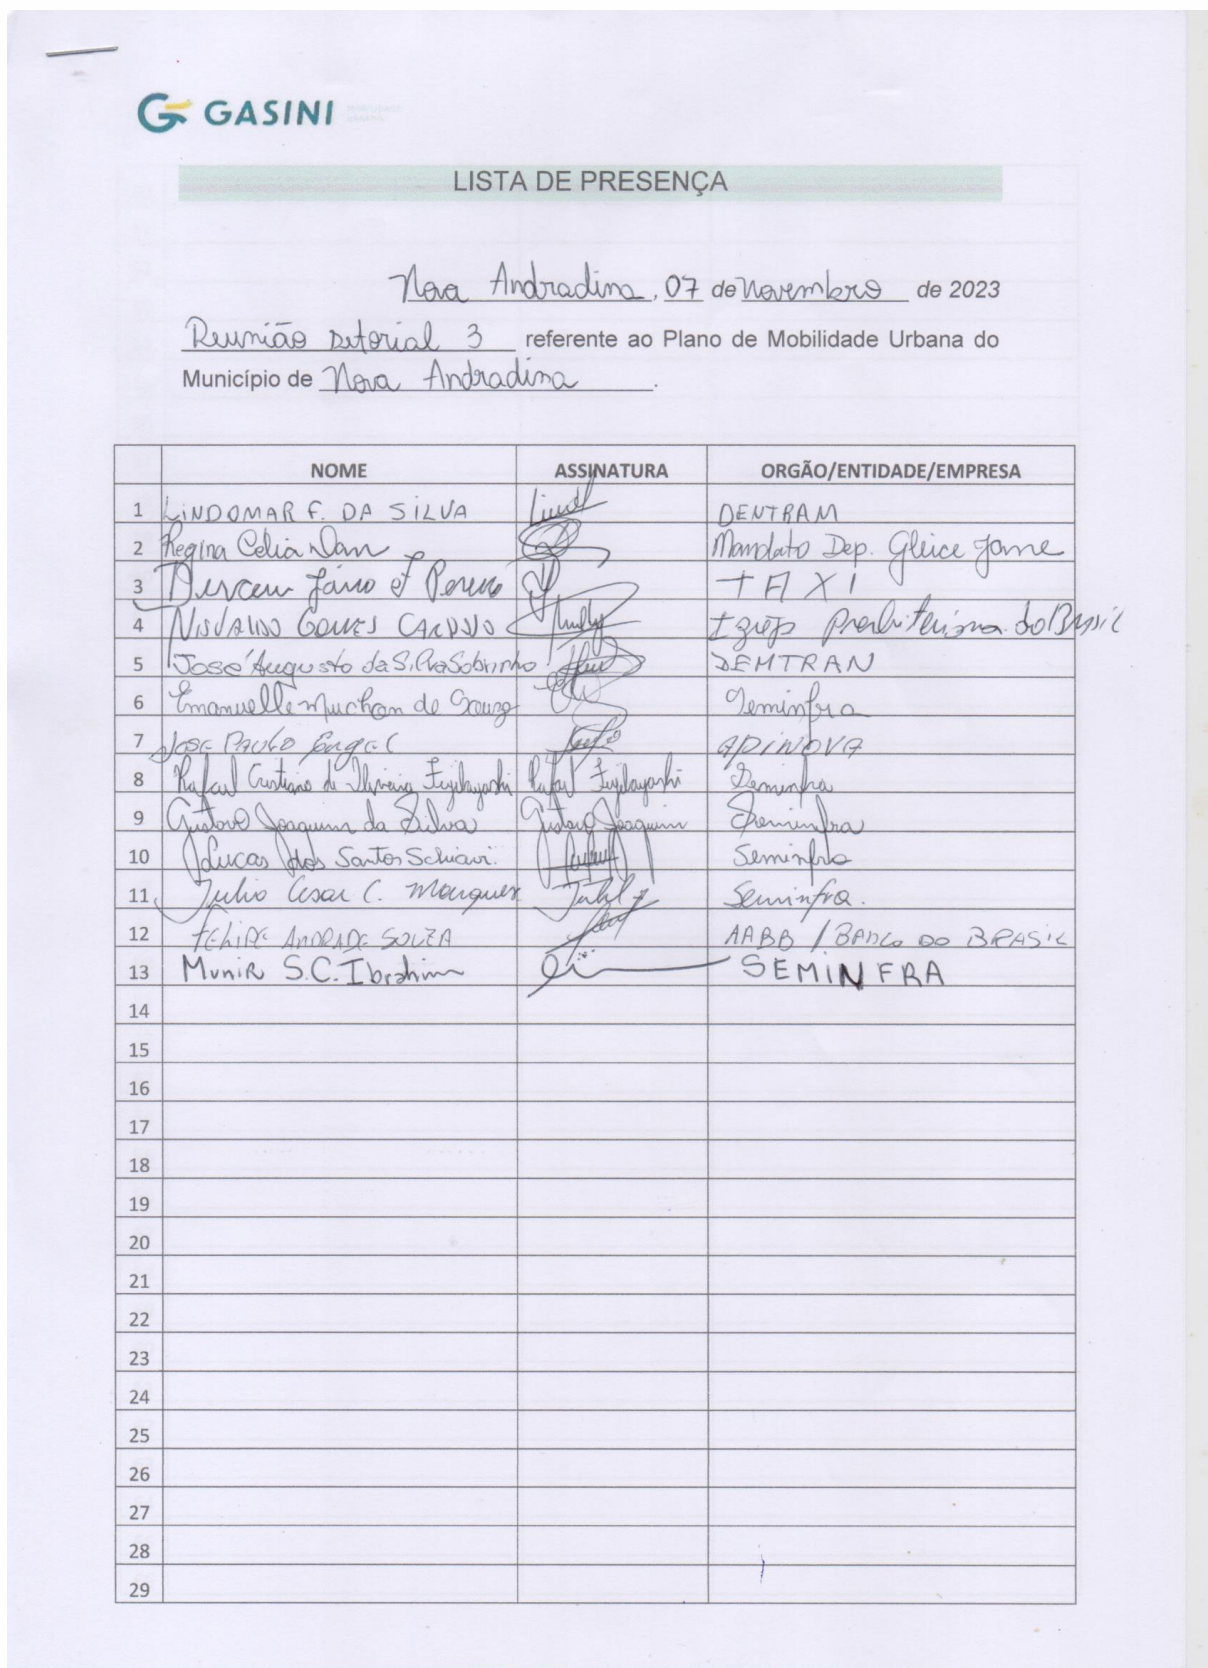 GASINI
LISTA DE PRESENÇA
Nova Andradina, 07 de novembro de 2023
Reunião setorial 3 referente ao Plano de Mobilidade Urbana do
Município de Nova Andradina.
NOME ASSINATURA ORGÃO/ENTIDADE/EMPRESA
1 LINDOMAR F. DA SILVA DENTRAM
2 Regina Celia Dan Mandato Dep. Gleice Jane
3 TAXI
4 NISVALDO GOMES CARDOSO Igreja Presbiteriana do Brasil
5 José Augusto da Silva Sobrinho DEMTRAN
6 Emanuelle Muchon de Souza Seminfra
7 JOSE PAULO ENGEL APINOVA
8 Rafael Cristiano de Oliveira Fujibayashi Rafael Fujibayashi Seminfra
9 Gustavo Joaquim da Silva Gustavo Joaquim Seminfra
10 Lucas dos Santos Schiavi. Seminfra
11 Julio Cesar C. Marques Seminfra.
12 FELIPE ANDRADE SOUZA AABB / BANCO DO BRASIL
13 Munir S.C. Ibrahim SEMINFRA
14
15
16
17
18
19
20
21
22
23
24
25
26
27
28
29